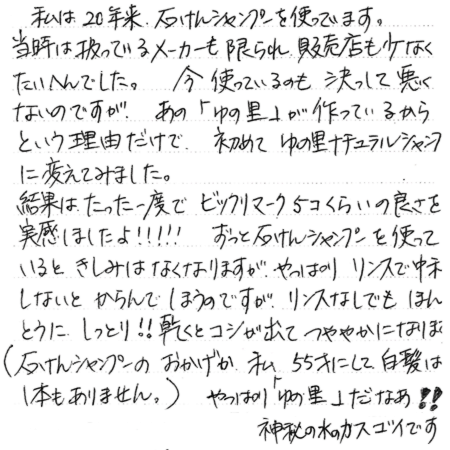 私は、20年来、石けんシャンプーを使っています。
当時は扱っているメーカーも限られ、販売店も少なく
たいへんでした。 今使っているのも決っして悪く
ないのですが、あの「ゆの里」が作っているから
という理由だけで、初めてゆの里ナチュラルシャンプ
に変えてみました。
結果はたった一度でビックリマーク5コくらいの良さを
実感しましたよ!!!!! ずっと石けんシャンプーを使って
いると、きしみはなくなりますが、やっぱりリンスで中和
しないとからんでしまうのですが、リンスなしでもほん
とうに、しっとり!! 乾くとコシが出てつややかになります
(石けんシャンプーのおかげか、私、55才にして白髪は
1本もありません。) やっぱり「ゆの里」だなあ!!
神秘の水のカスゴイです